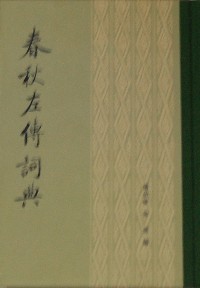 春秋左傳詞典